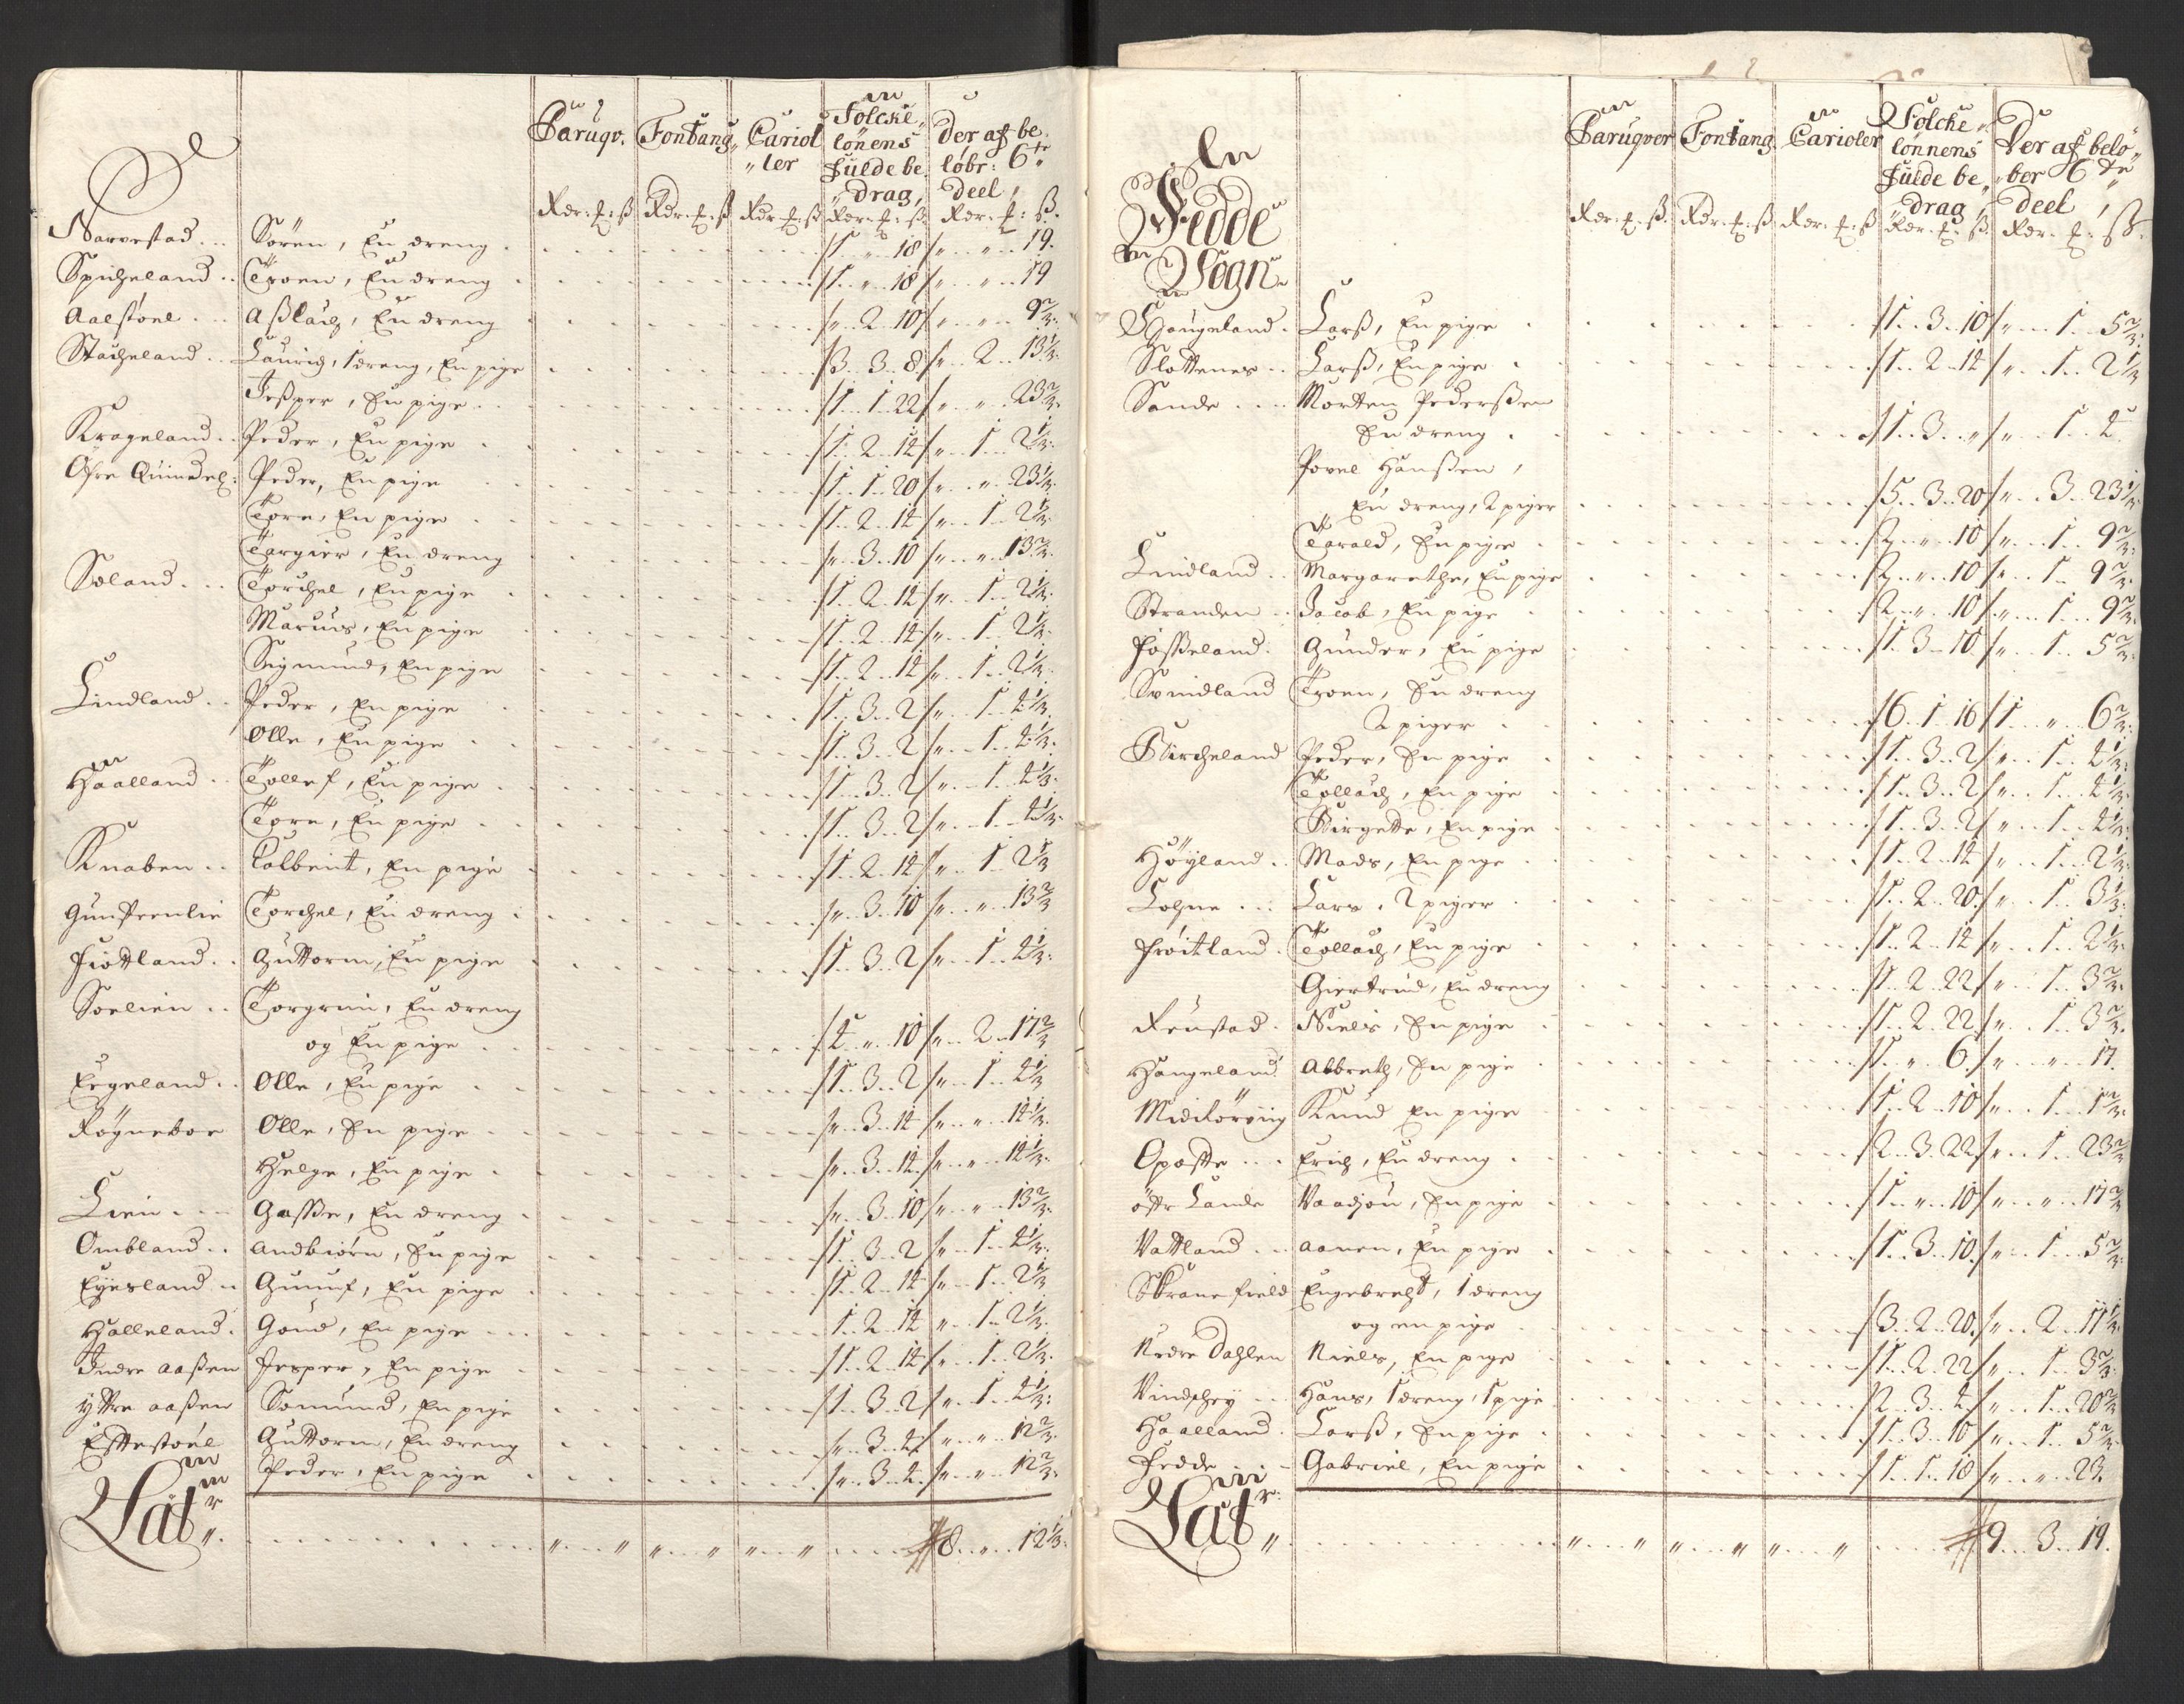 Paruqv. Fontang, Cariol„ler Folcke„lönens fulde be„drag, Der af be„löbr: 6te deel,
Rdr. ℔: ß Rdr. ℔: ß Rdr ℔: ß Rdr. ℔: ß Rdr. ℔: ß.
Narvestad Sören, En dreng 1 „ 18 „ „ 19.
Spicheland Troen, En dreng 1 „ 18 „ „ 19
Aalstöel Aßlach, En dreng „ 2 10 „ „ 9 2/3
Stacheland Laurich, 1 dreng, En pige 3 3 8 „ 2 13 1/3
Jesper, En pige 1 1 22 „ „ 23 2/3
Krageland Peder, En pige 1 2 14 „ 1 2 1/3
Öfre Quindel: Peder, En pige 1 1 20 „ „ 23 1/3
Tore, En pige 1 2 14 „ 1 2 1/3
Targier, En dreng „ 3 10 „ „ 13 2/3
Soland Torchel, En pige 1 2 14 „ 1 2 1/3
Marcus, En pige 1 2 14 „ 1 2 1/3
Sigmund, En pige 1 2 14 „ 1 2 1/3
Lindland Peder, En pige 1 3 2 „ 1 4 1/3
Olle, En pige 1 3 2 „ 1 4 1/3
Haalland Tollef, En pige 1 3 2 „ 1 4 1/3
Tore, En pige 1 3 2 „ 1 4 1/3
Knaben Salbent, En pige 1 2 14 „ 1 2 1/3
Torchel, En dreng „ 3 10 „ „ 13 2/3
Fiotland Guttorm, En pige 1 3 2 „ 1 4 1/3
Soelien Torgrim, En dreng
og En pige 4 „ 10 „ 2 17 2/3
Eegeland Olle, En pige 1 3 2 „ 1 4 1/3
Röyneboe Olle, En pige „ 3 14 „ „ 14 1/3
Helge, En pige „ 3 14 „ „ 14 1/3
Lien Gasse, En dreng „ 3 10 „ „ 13 2/3
Ombland Andbiörn, En pige 1 3 2 „ 1 4 1/3
Eyesland Gunuf, En pige 1 2 14 „ 1 2 1/3
Halleland Goud, En pige 1 2 14 „ 1 2 1/3
Indre Aaßen Jesper, En pige 1 2 14 „ 1 2 1/3
ytre Aaßen Somund, En pige 1 3 2 „ 1 4 1/3
Eftestöel Guttorm, En dreng „ 3 4 „ „ 12 2/3
Peder, En pige „ 3 4 „ „ 12 2/3
Lat„r „ „ „ „ „ „ 8 „ 12 1/3
Paruqver Fontang Carioler Folcke„lönnens fulde be„drag Der af belö„ber 6te deel,
Rdr. ℔. ß. Rdr. ℔. ß Rdr. ℔. ß Rdr. ℔. ß. Rdr. ℔: ß.
Fedde
Sogn
Haugeland Larß, En pige 1 3 10 „ 1 5 2/3
Slottenes Larß, En pige 1 2 14 „ 1 2 1/3
Sande Morten Pederßen
En dreng 1 3 „ „ 1 4.
Povel Hanßen,
En dreng, 2 piger 5 3 20 „ 3 23 1/3
Tarald, En pige 2 „ 10 „ 1 9 2/3
Lindland Margarethe, En pige 2 „ 10 „ 1 9 2/3
Stranden Jacob, En pige 2 „ 10 „ 1 9 2/3
Fosseland Gunder, En pige 1 3 10 „ 1 5 2/3
Svindland Troen, En dreng
2 piger 6 1 16 1 „ 6 2/3
Kircheland Peder, En pige 1 3 2 „ 1 4 1/3
Tollach, En pige 1 3 2 „ 1 4 1/3
Birgette, En pige 1 3 2 „ 1 4 1/3
Höyland Mads, En pige 1 2 14 „ 1 2 1/3
Lohne Lars, 2 piger 1 2 20 „ 1 3 1/3
Fröitland Tollach, En pige 1 2 14 „ 1 2 1/3
Giertrud, En dreng 1 2 22 „ 1 3 2/3
Reustad Niels, En pige 1 2 22 „ 1 3 2/3
Haugeland Abbreth, En pige 1 „ 6 „ „ 17.
Midkörviig Knud En pige 1 2 10 „ 1 1 2/3
Opofte Erich, En dreng 2 3 22 „ 1 23 2/3
öftr Lande Vaadjou, En pige 1 „ 10 „ „ 17 2/3
Vatland Aanen, En pige 1 3 10 „ 1 5 2/3
Skranefield Engebreht, 1 dreng
og en pige 3 2 20 „ 2 11 1/3
Nedre Dahlen Niels, En pige 1 2 22 „ 1 3 2/3
Vindshey Hans, 1 dreng, 1 pige 2 3 4 „ 1 20 2/3
Haalland Larß, En pige 1 3 10 „ 1 5 2/3
Fedde Gabriel, En pige 1 1 18 „ „ 23.
Lat„r: „ „ „ „ „ „ 9 3 19.